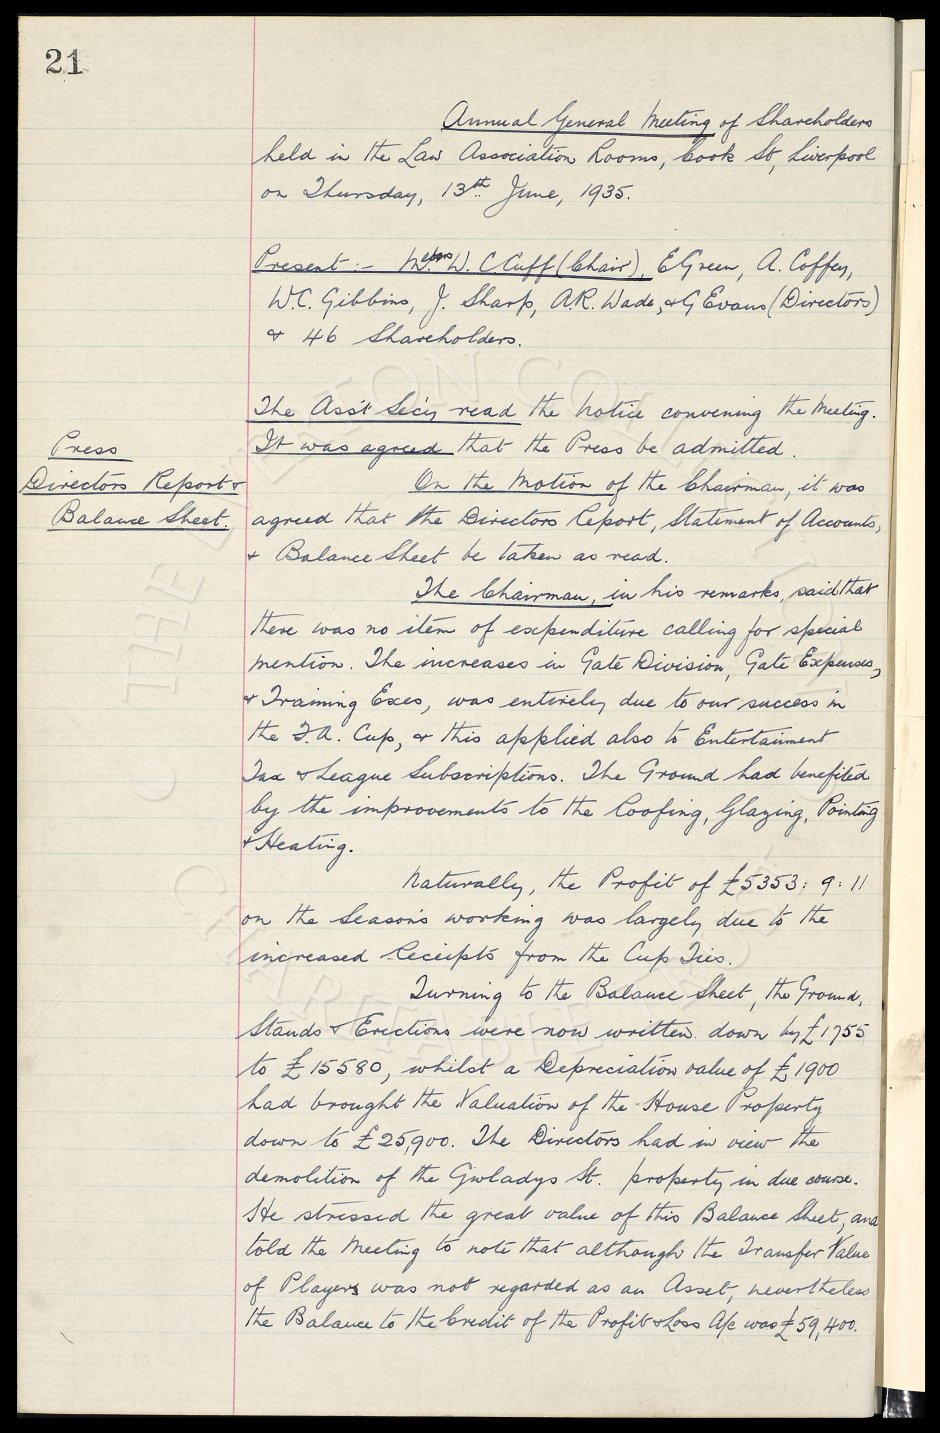 21
Annual General Meeting of Shareholders
held in the Law Association Rooms, Cook St, Liverpool
on Thursday, 13th June, 1935.
Present:- Messrs W. C Cuff (Chair), E Green, A. Coffey,
W.C. Gibbins, J. Sharp, A.R. Wade, & G Evans (Directors)
& 46 Shareholders.
The Ass't Sec'y read the notice convening the Meeting.
Press
It was agreed that the Press be admitted.
Directors Report &
On the Motion of the Chairman, it was
Balance Sheet.
agreed that the Directors Report, Statement of Accounts,
& Balance Sheet be taken as read.
The Chairman, in his remarks, said that
there was no item of expenditure calling for special
mention. The increases in Gate Division, Gate Expenses,
& Training Exes, was entirely due to our success in
the F.A. Cup, & this applied also to Entertainment
Tax & League Subscriptions. The Ground had benefited
by the improvements to the Roofing, Glazing, Pointing
& Heating.
Naturally, the Profit of £5353: 9: 11
on the Season's working was largely due to the
increased Receipts from the Cup Ties.
Turning to the Balance Sheet, the Ground,
Stands & Erections were now written down by £1755
to £15580, whilst a Depreciation value of £1900
had brought the Valuation of the House Property
down to £25,900. The Directors had in view the
demolition of the Gwladys St. property in due course.
He stressed the great value of this Balance Sheet, and
told the Meeting to note that although the Transfer Value
of Players was not regarded as an Asset, nevertheless
the Balance to the Credit of the Profit & Loss A/c was £59,400.
© THE EVERTON COLLECTION CHARITABLE TRUST